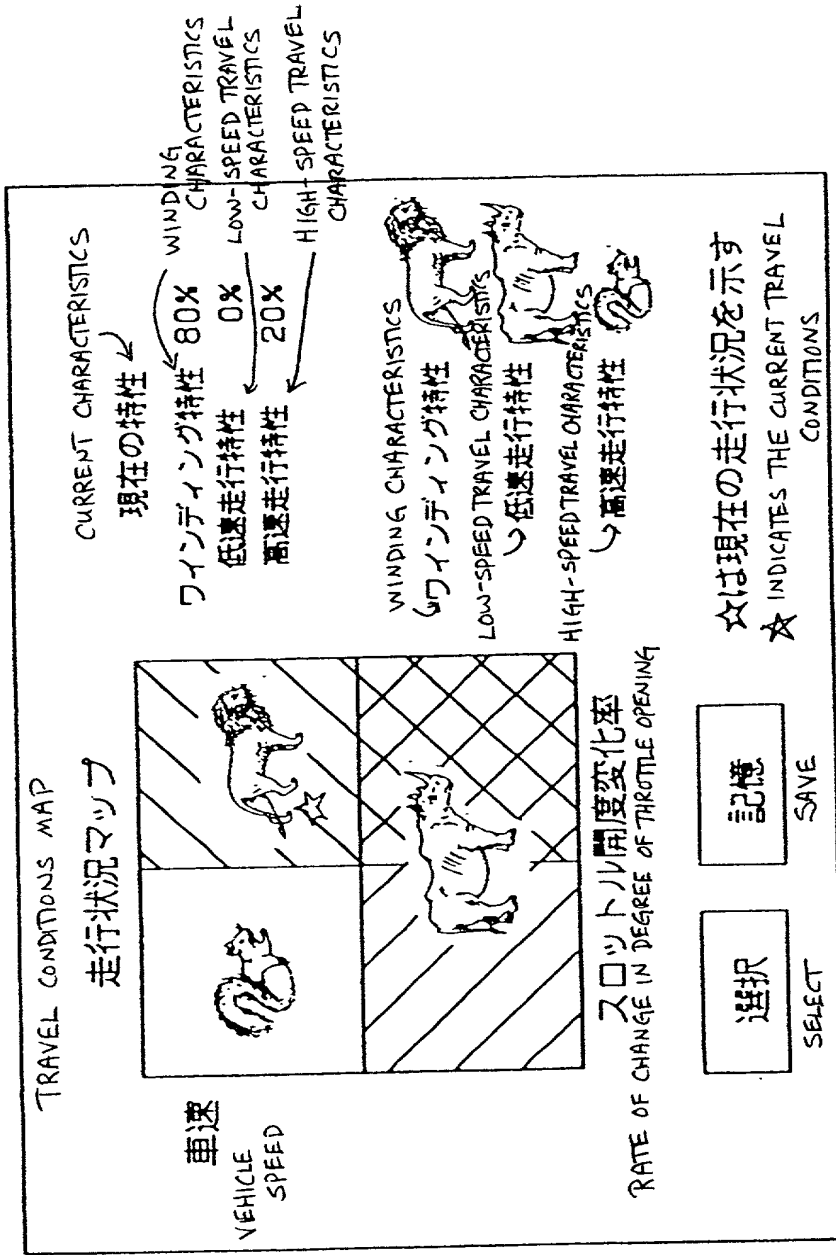 TRAVEL CONDITIONS MAP
走行状況マップ
車速
VEHICLE
SPEED
スロットル開度変化率
RATE OF CHANGE IN DEGREE OF THROTTLE OPENING
選択
SELECT
記憶
SAVE
CURRENT CHARACTERISTICS
現在の特性
ワインディング特性 80%
低速走行特性 0%
高速走行特性 20%
WINDING
CHARACTERISTICS
LOW-SPEED TRAVEL
CHARACTERISTICS
HIGH-SPEED TRAVEL
CHARACTERISTICS
WINDING CHARACTERISTICS
ワインディング特性
LOW-SPEED TRAVEL CHARACTERISTICS
低速走行特性
HIGH-SPEED TRAVEL CHARACTERISTICS
高速走行特性
☆は現在の走行状況を示す
☆ INDICATES THE CURRENT TRAVEL
CONDITIONS